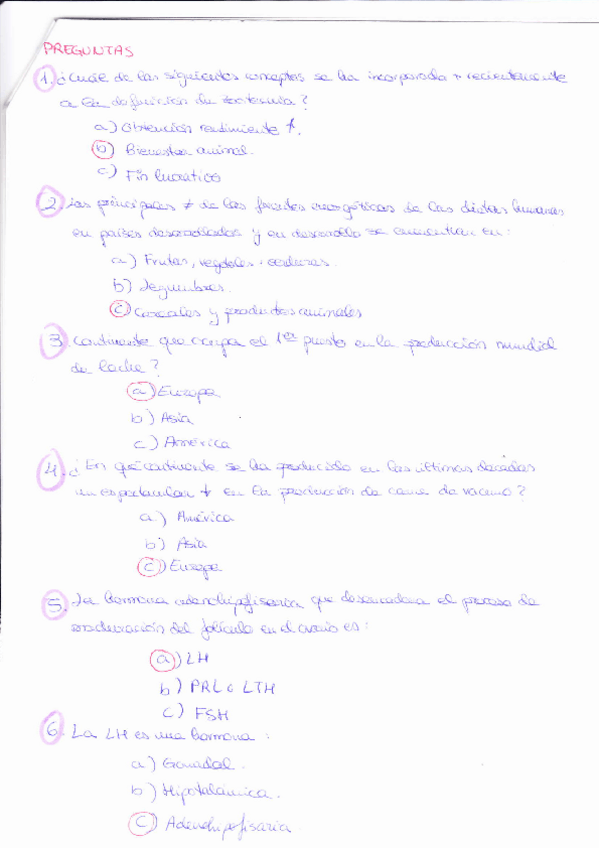 PREGUNTAS
1. ¿Cuál de los siguientes conceptos se ha incorporado + recientemente
a la definición de zootecnia?
a) Obtención rendimiento ↑.
b) Bienestar animal.
c) Fin lucrativo
2. Las principales ≠ de las fuentes energéticas de las dietas humanas
en países desarrollados y en desarrollo se encuentran en:
a) Frutas, vegetales verduras.
b) Legumbres.
c) Cereales y productos animales
3. Continente que ocupa el 1er puesto en la producción mundial
de leche?
a) Europa
b) Asia
c) América
4. ¿En qué continente se ha producido en las últimas décadas
un espectacular en la producción de carne de vacuno?
a) América
b) Asia
c) Europa
5. La hormona adenohipofisaria que desencadena el proceso de
maduración del folículo en el ovario es:
a) LH
b) PRL o LTH
c) FSH
6. La LH es una hormona:
a) Gonadal.
b) Hipotalámica.
c) Adenohipofisaria